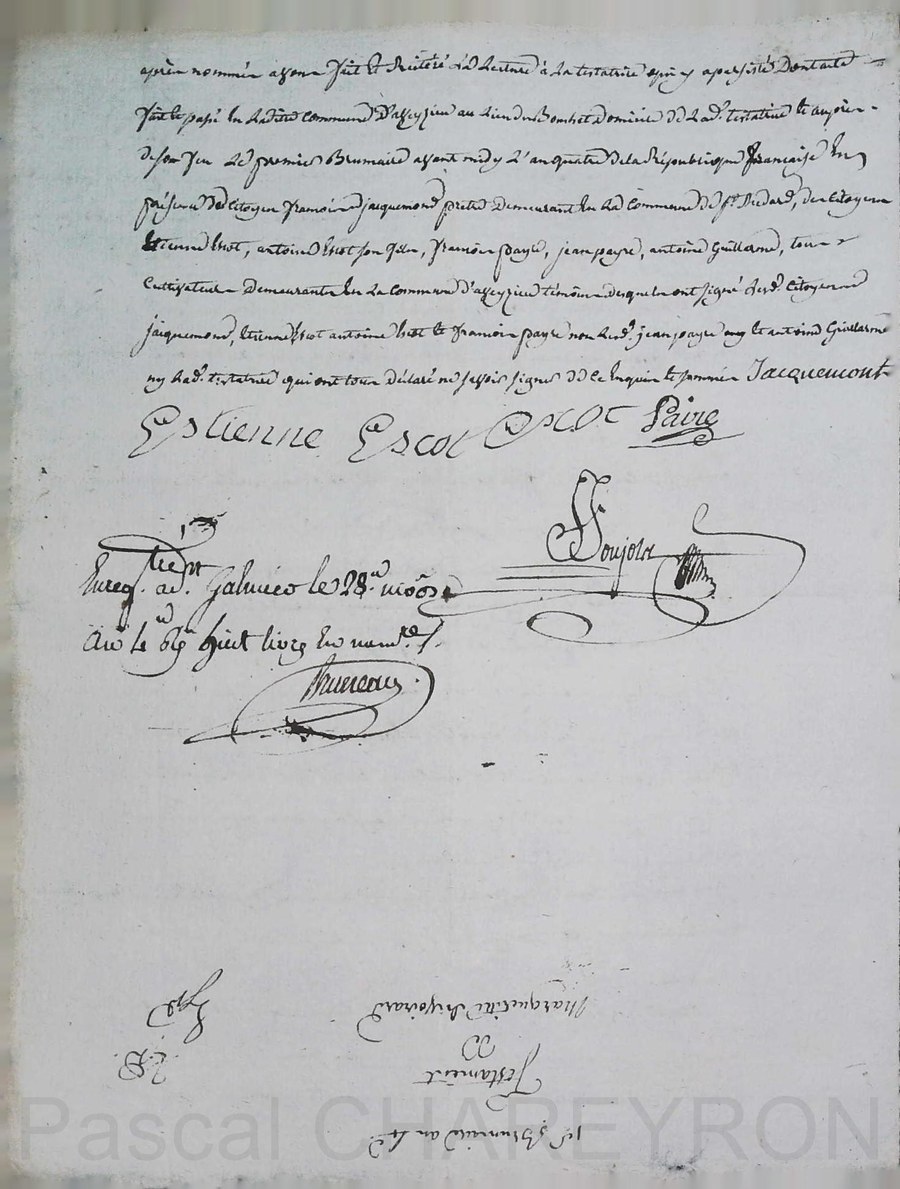 après nommés avons fait et réitéré la lecture à la testatrice qui y a persisté dont acte
fait et passé en ladite commune d'aveyzieu au lieu du Bouchet domicile de lad. testatrice le aujour-
d'huy le premier Brumaire avant midy l'an quatre de la République française en
présence de Citoyen françois jacquemond pretre demeurant en la commune de st. Medard, des Citoyens
Etienne Escot, antoine Escot son fils, françois payre, jean payre, antoine Guillarme, tous
Cultivateurs demeurants en la commune d'aveyzieu témoins desquels ont signé lesd. Citoyens
jacquemond, Etienne Escot antoine Escot et françois payre non led. jean payre ny led antoine Guillarme
ny lad. testatrice qui ont tous déclaré ne savoir signer de ce enquis et sommés Jacquemont
Estienne Escot Escot Paire
Soujols
Enreg. a Galmier le 28
huit livre en num.
Bruneau
Marguerite
Testament
1er Brumaire an 4